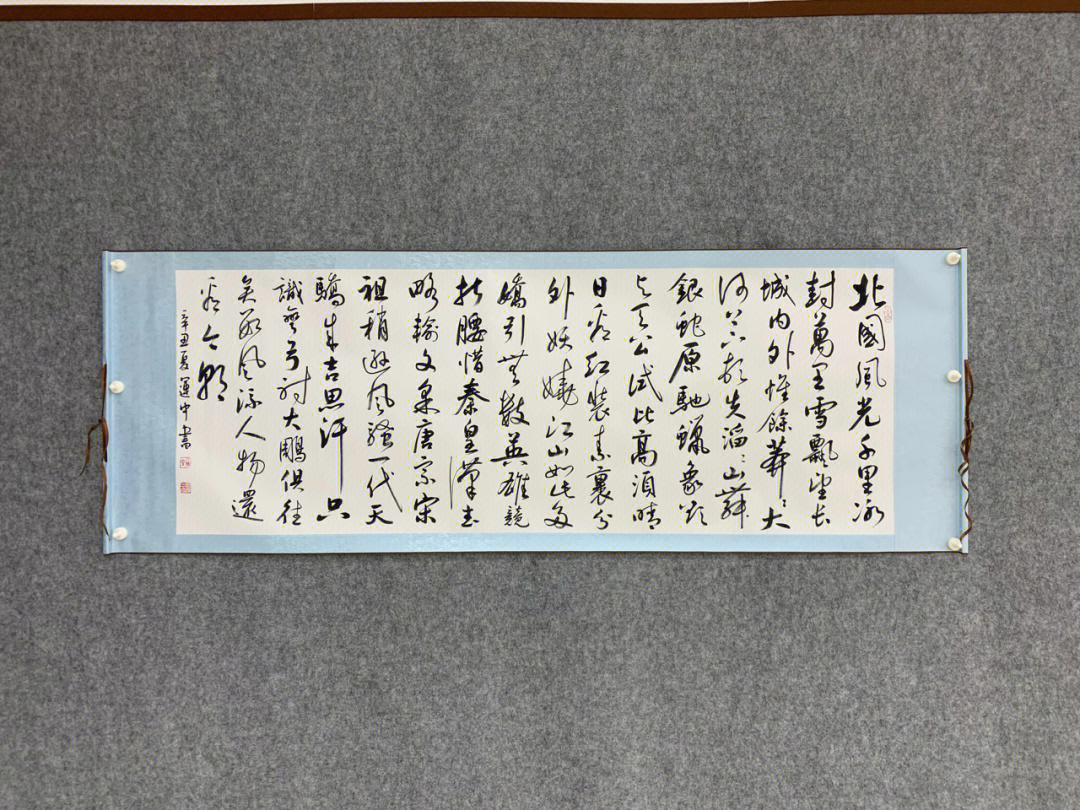 北國風光千里冰
封萬里雪飄望長
城内外惟餘莽〻大
河上下頓失滔〻山舞
銀蛇原馳蠟象欲
与天公試比高須晴
日看紅裝素裹分
外妖嬈江山如此多
嬌引無數英雄競
折腰惜秦皇漢武
略輸文采唐宗宋
祖稍遜風騷一代天
驕成吉思汗只
識彎弓射大鵰俱往
矣數風流人物還
看今朝
辛丑夏運中書